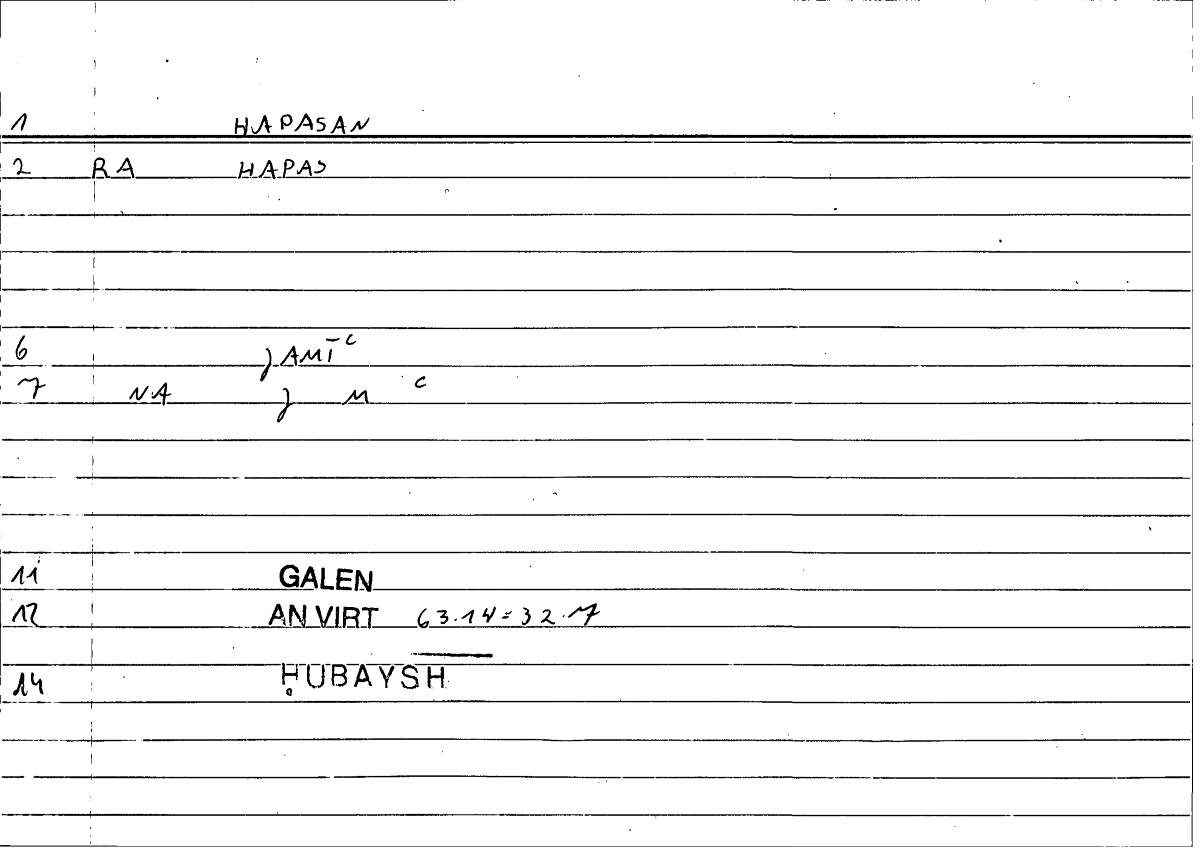 1 HAPASAN
2 RA HAPAS
6 ȷAMĪᶜ
7 NA ȷ M ᶜ
11 GALEN
12 AN VIRT 63.14=32.7
14 ḤUBAYSH